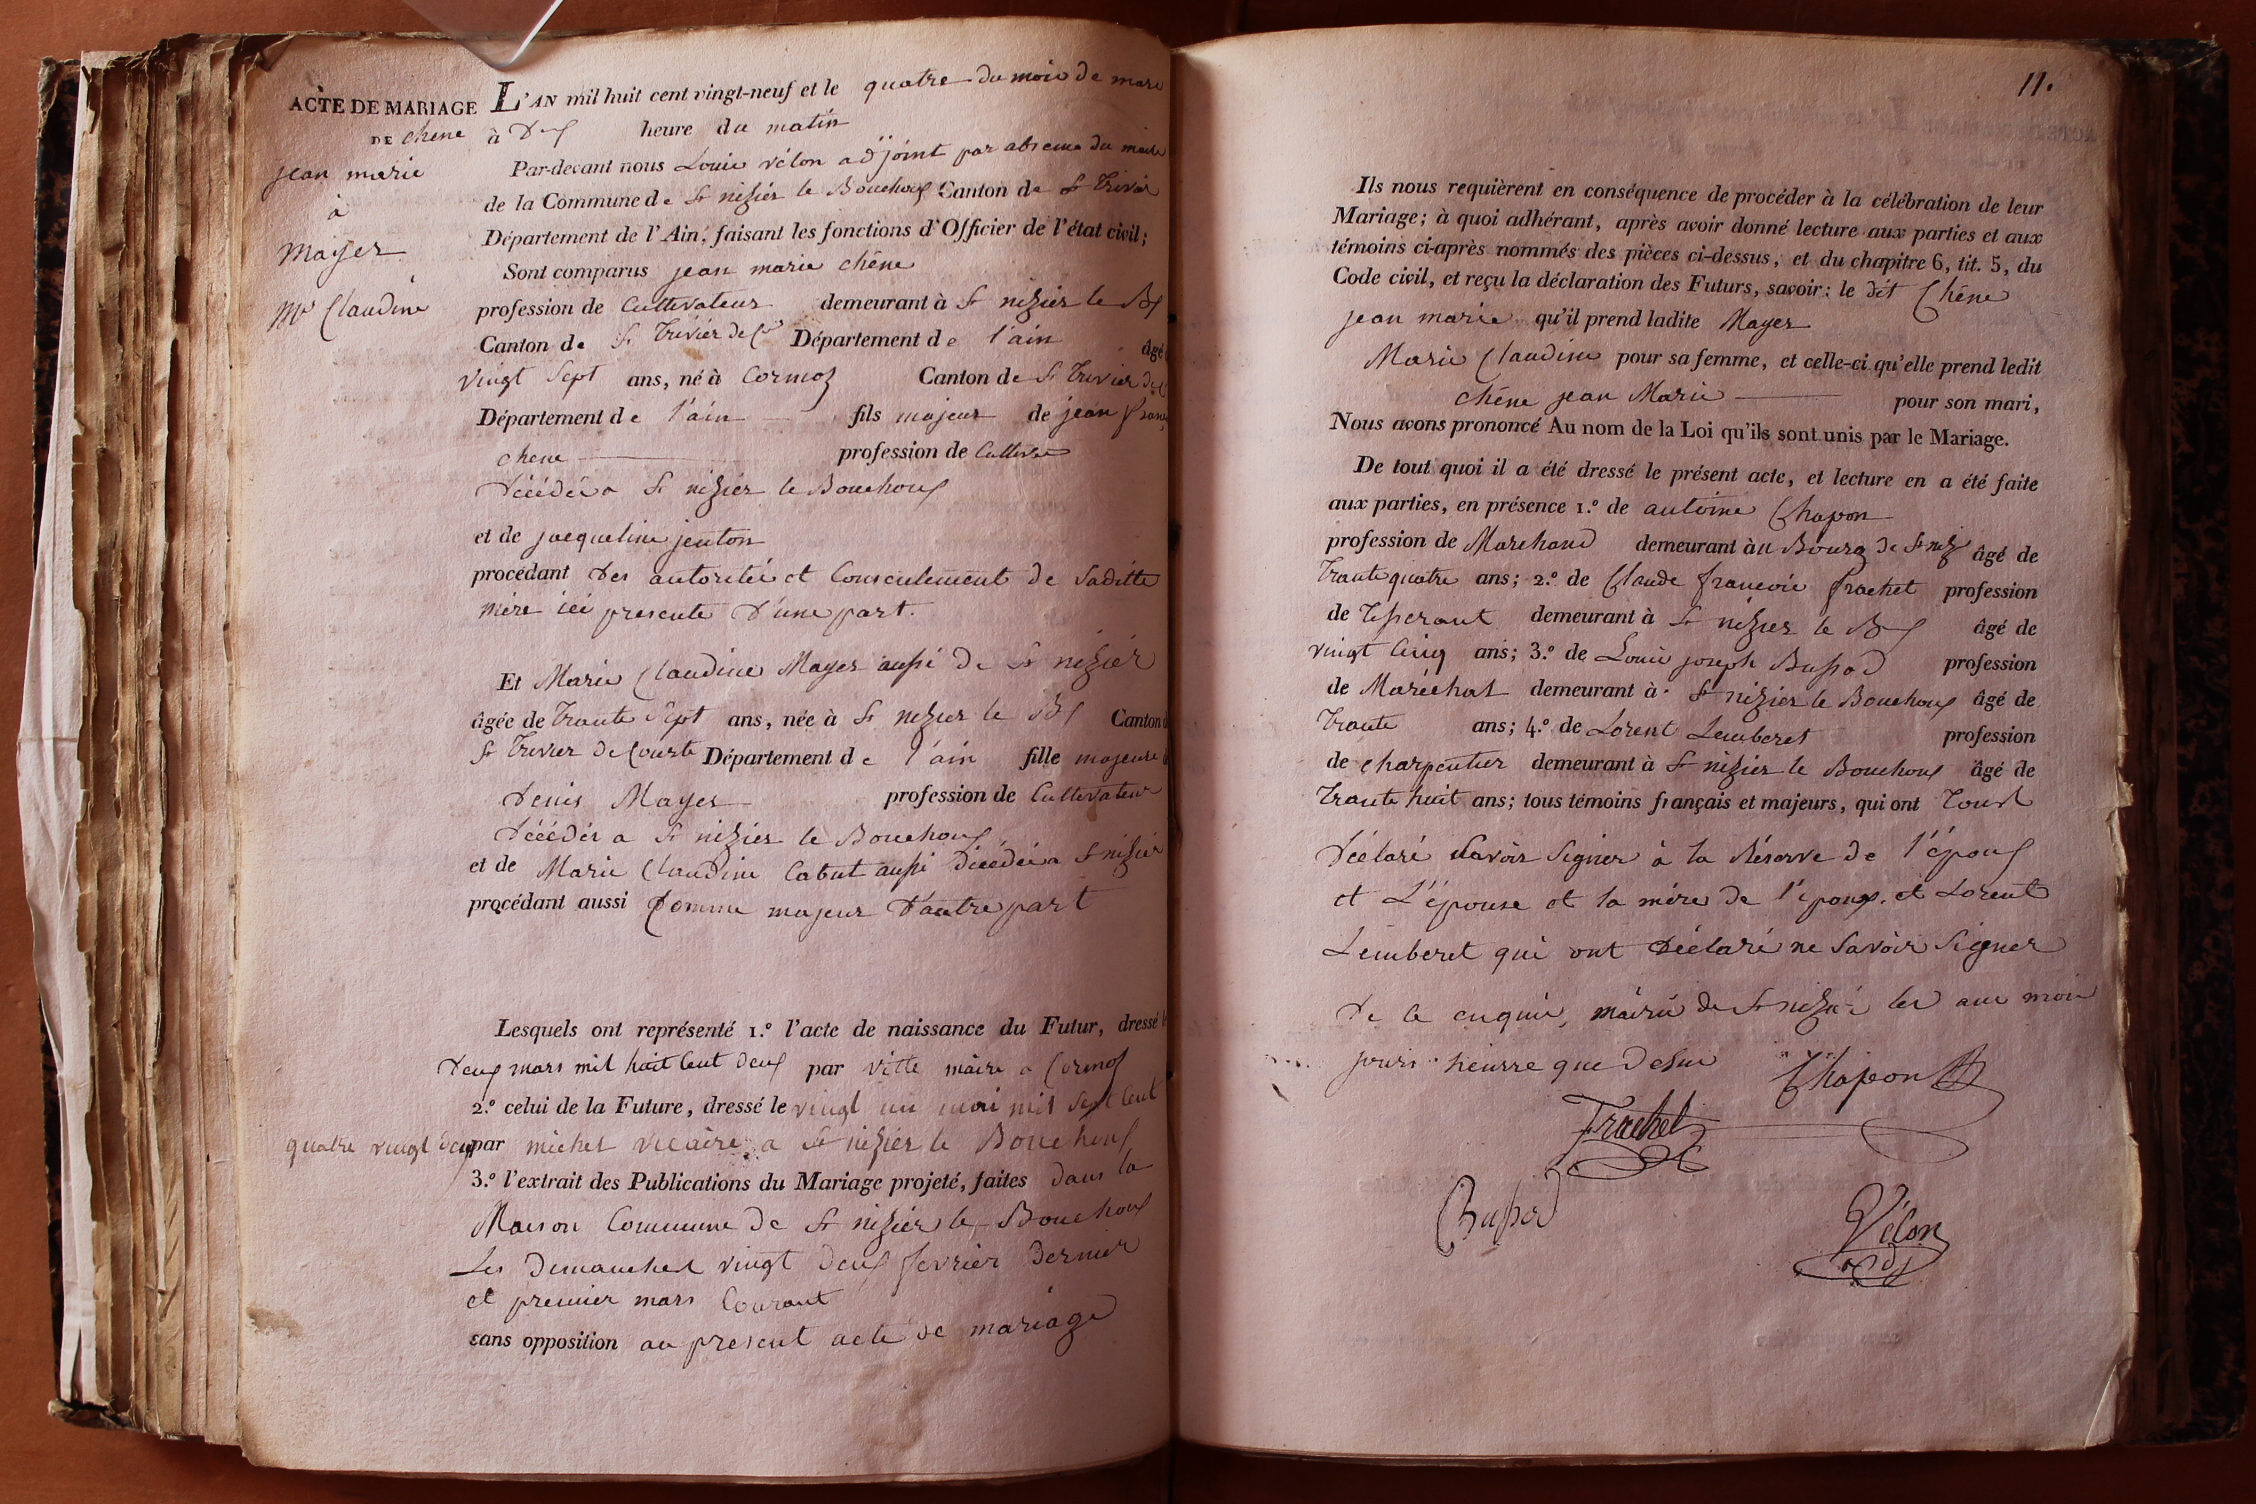 ACTE DE MARIAGE
DE chene
jean marie
à
Mayer
Mie Claudine
L'AN mil huit cent vingt-neuf et le quatre du mois de mars
à heure du matin
Par-devant nous Louis vélon adjoint par absence du maire
de la Commune de St nizier le Bouchoux Canton de St Trivier
Département de l'Ain, faisant les fonctions d'Officier de l'état civil;
Sont comparus jean marie chêne
profession de Cultivateur demeurant à St nizier le Bx
Canton de St Trivier de Cte Département de l'ain âgé
vingt sept ans, né à Cormoz Canton de St Trivier de C
Département de l'ain fils majeur de jean fran
chene profession de Cultivat
Décédé a St nizier le Bouchoux
et de jacqueline jenton
procédant Des autorité et Consentement de Saditte
mère ici presente D'une part.
Et Marie Claudine Mayer aussi De St nizier
âgée de trante sept ans, née à St nizier le Bx Canton d
St Trivier de Courte Département de l'ain fille majeure d
Denis Mayer profession de Cultivateur
Décédér a St nizier le Bouchoux
et de Marie Claudine Cabut aussi Décédé a St nizier
procédant aussi Comme majeur D'autre part
Lesquels ont représenté 1.º l'acte de naissance du Futur, dressé l
Deux mars mil huit Cent deux par vitte maire a Cormoz
2.º celui de la Future, dressé le vingt un mil sept Cent
quatre vingt deux par michel vicaire a St nizier le Bouchoux
3.º l'extrait des Publications du Mariage projeté, faites dans la
Maison Commune de St nizier le Bouchoux
Les Dimanches vingt deux fevrier dernier
et premier mars Courant
sans opposition au present acte de mariage
11.
Ils nous requièrent en conséquence de procéder à la célébration de leur
Mariage; à quoi adhérant, après avoir donné lecture aux parties et aux
témoins ci-après nommés des pièces ci-dessus, et du chapitre 6, tit. 5, du
Code civil, et reçu la déclaration des Futurs, savoir: le dit Chêne
jean marie qu'il prend ladite Mayer
Marie Claudine pour sa femme, et celle-ci qu'elle prend ledit
chêne jean Marie pour son mari,
Nous avons prononcé Au nom de la Loi qu'ils sont unis par le Mariage.
De tout quoi il a été dressé le présent acte, et lecture en a été faite
aux parties, en présence 1.º de antoine Chapon
profession de Marchand demeurant à u Bourg de St niz âgé de
Trante quatre ans; 2.º de Claude françois frachet profession
de Tisserant demeurant à St nizier le Bx âgé de
vingt Cinq ans; 3.º de Louis joseph Bussod profession
de Maréchal demeurant à St nizier le Bouchoux âgé de
Trante ans; 4.º de Lorent Lemberet profession
de charpentier demeurant à St nizier le Bouchoux âgé de
Trante huit ans; tous témoins français et majeurs, qui ont
Déclaré Savoir Signer à la Réserve de l'époux
et L'épouse et la mére de l'époux. et Lorent
Lemberet qui ont Déclaré ne Savoir Signer
De ce enquis, mairie de St nizié les an mois
jours heurre que Desus
Chapon
Frachet
Bussod
Vélon
adj